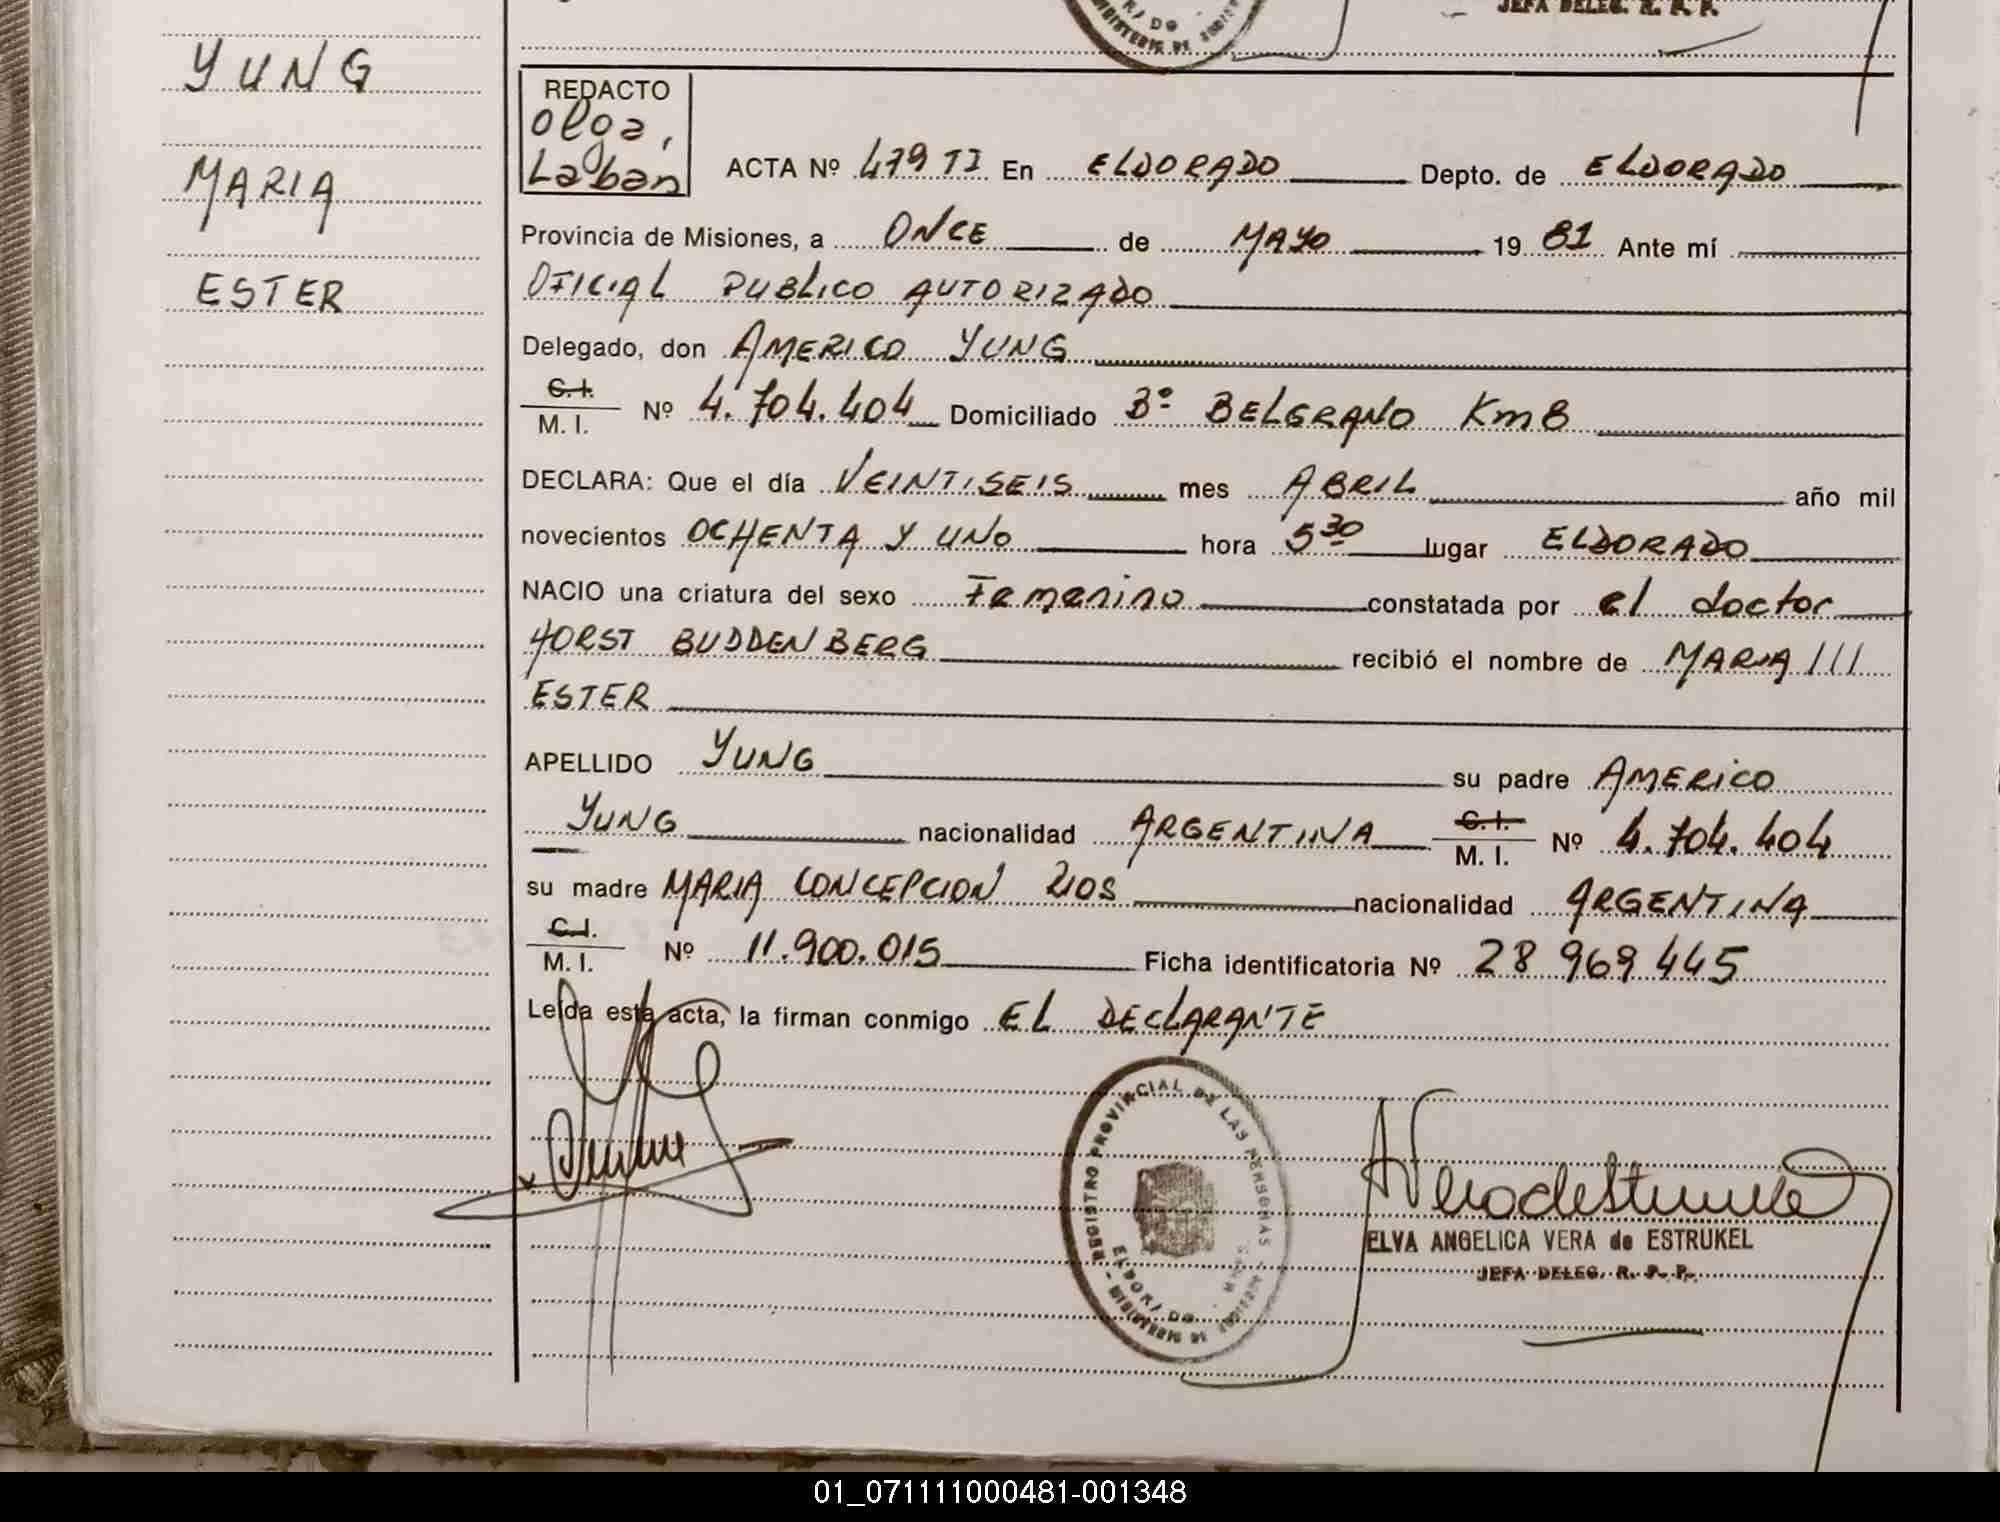 JEFA DELEG. R. P. P.
YUNG
MARIA
ESTER
REDACTO
Olga,
Laban
ACTA Nº 479 TI En ELDORADO Depto. de ELDORADO
Provincia de Misiones, a ONCE de MAYO 19 81 Ante mí
OFICIAL PUBLICO AUTORIZADO
Delegado, don AMERICO YUNG
C. I.
M. I. Nº 4.704.404 Domiciliado Bº BELGRANO Km 8
DECLARA: Que el día VEINTISEIS mes ABRIL año mil
novecientos OCHENTA Y UNO hora 5 30 lugar ELDORADO
NACIO una criatura del sexo Femenino constatada por el doctor
HORST BUDDENBERG recibió el nombre de MARIA ///
ESTER
APELLIDO YUNG su padre AMERICO
YUNG nacionalidad ARGENTINA C. I. M. I. Nº 4.704.404
su madre MARIA CONCEPCION RIOS nacionalidad ARGENTINA
C. I.
M. I. Nº 11.900.015 Ficha identificatoria Nº 28 969 445
Leída esta acta, la firman conmigo EL DECLARANTE
REGISTRO PROVINCIAL DE LAS PERSONAS
ELDORADO
ELVA ANGELICA VERA de ESTRUKEL
JEFA DELEG. R. P. P.
01_071111000481-001348